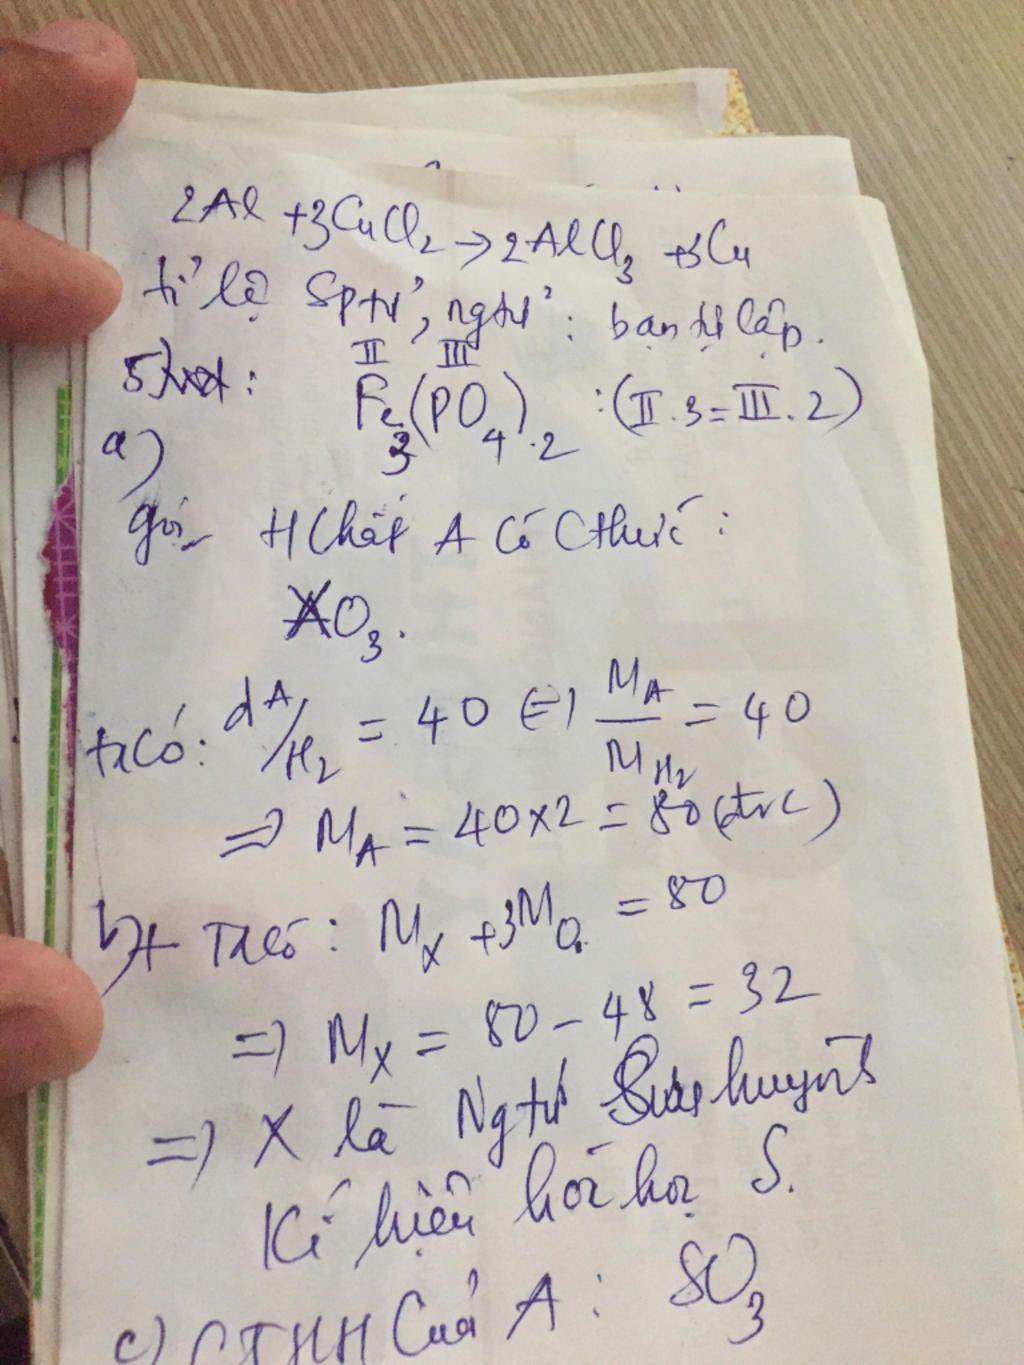 2Al + 3CuCl2 → 2AlCl3 + 3Cu
tỉ lệ Sptử, ngtử: bạn tự lập.
II III
5) : Fe3(PO4).2 : (II.3 = III.2)
a)
gọi HChất A có Cthức:
XO3.
ta có: dA/H2 = 40 (=) MA/MH2 = 40
=> MA = 40x2 = 80 (đvc)
b) + Ta có: MX + 3MO = 80
=> MX = 80 - 48 = 32
=> X là Ngtử lưu huỳnh
Kí hiệu hóa học S.
c) CTHH Của A: SO3